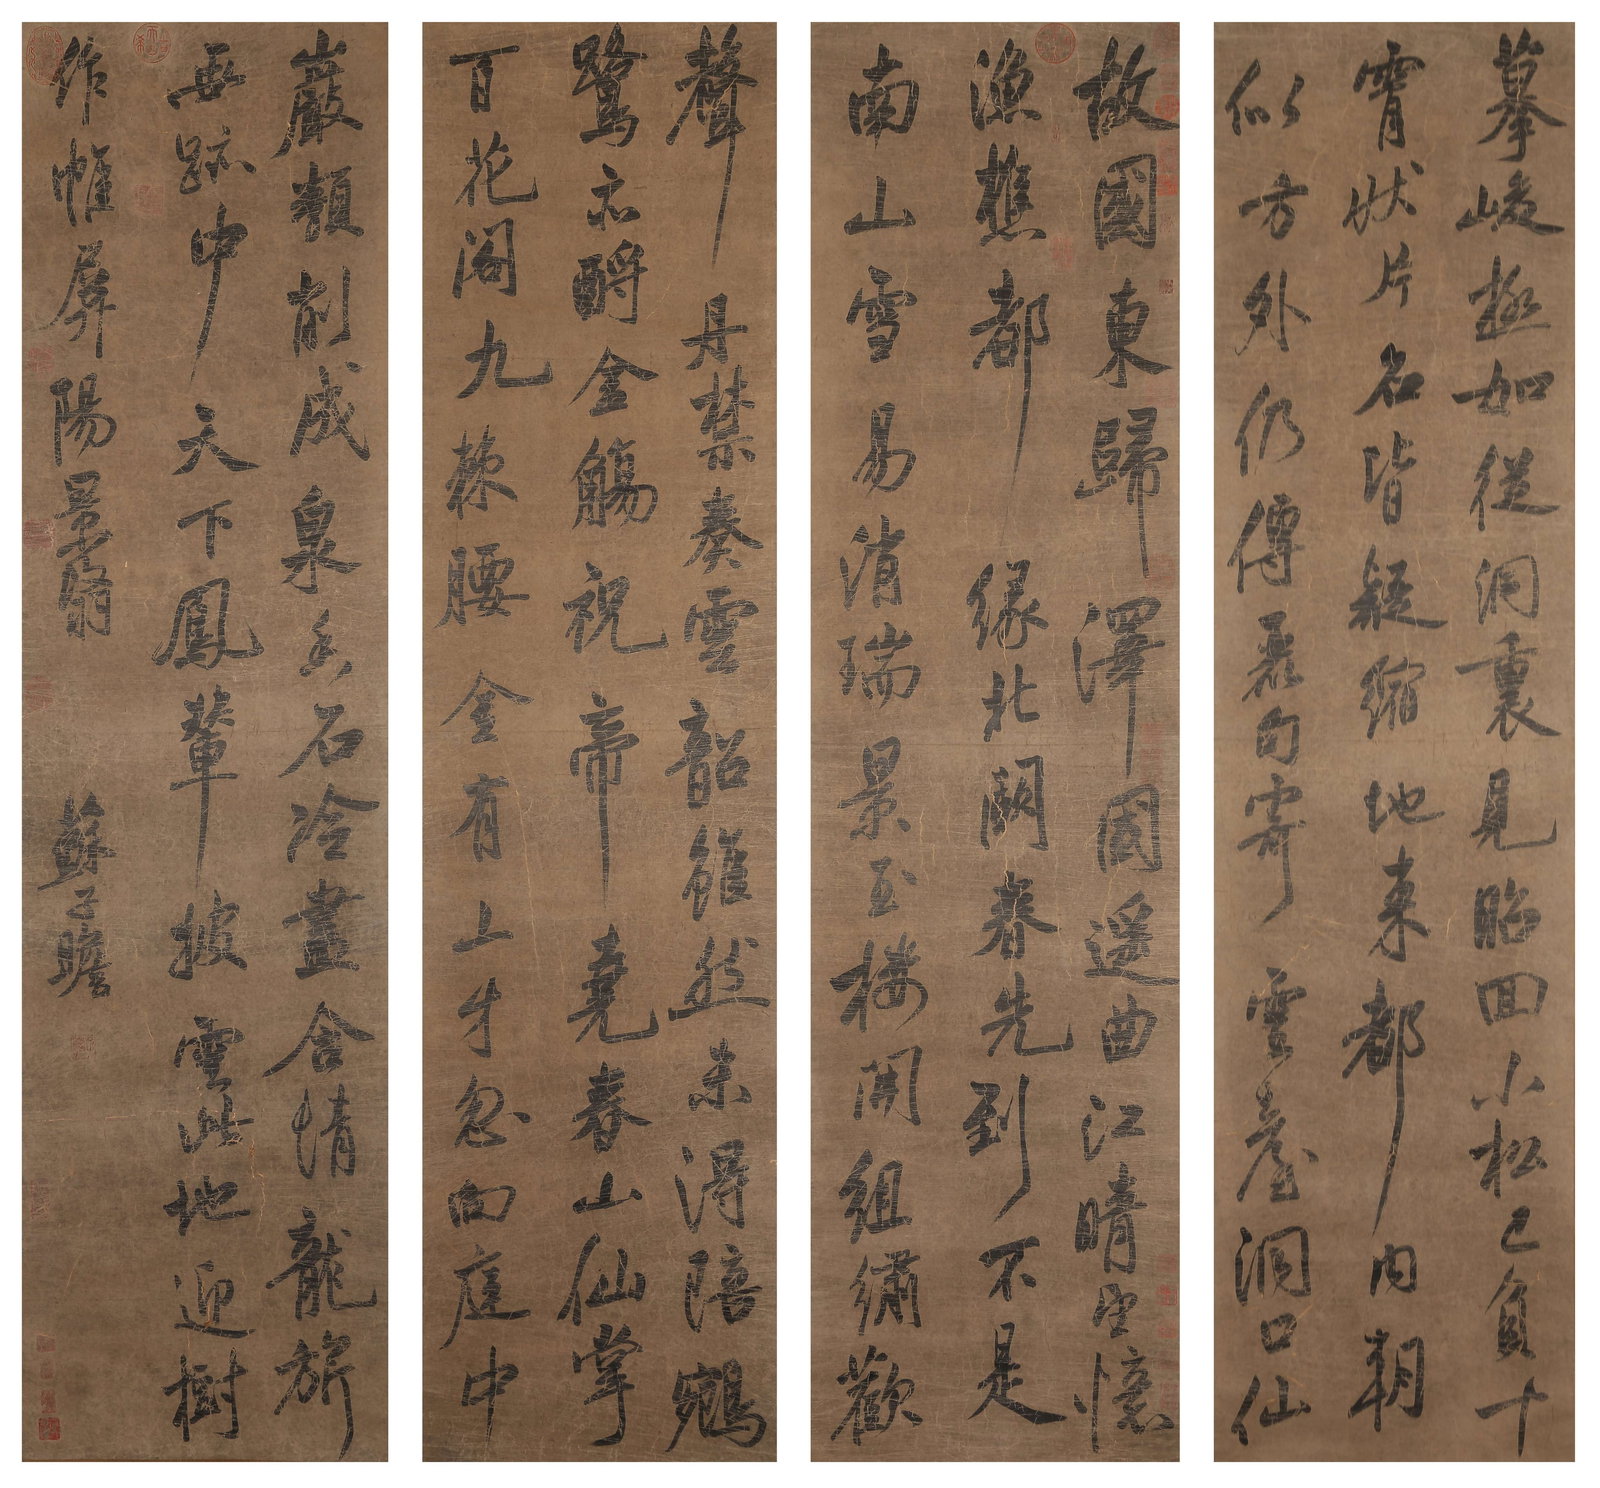 摹峻極如從洞裏見昭回小松已負十
霄狀片石皆疑縮地來都內朝
似方外仍傳麗句寄雲臺洞口仙
故國東歸澤國遥曲江晴望憶
漁樵都緣北闕春先到不是
南山雪易消瑞景玉樓開組繡歡
聲丹禁奏雲韶雖然未得陪鵷
鷺亦酹金觴祝帝堯春山仙掌
百花開九棘腰金有上才忽向庭中
巖類削成泉石冷盡含情龍旂
無跡中天下鳳輦披雲此地迎樹
作帷屏陽景翳 蘇子瞻